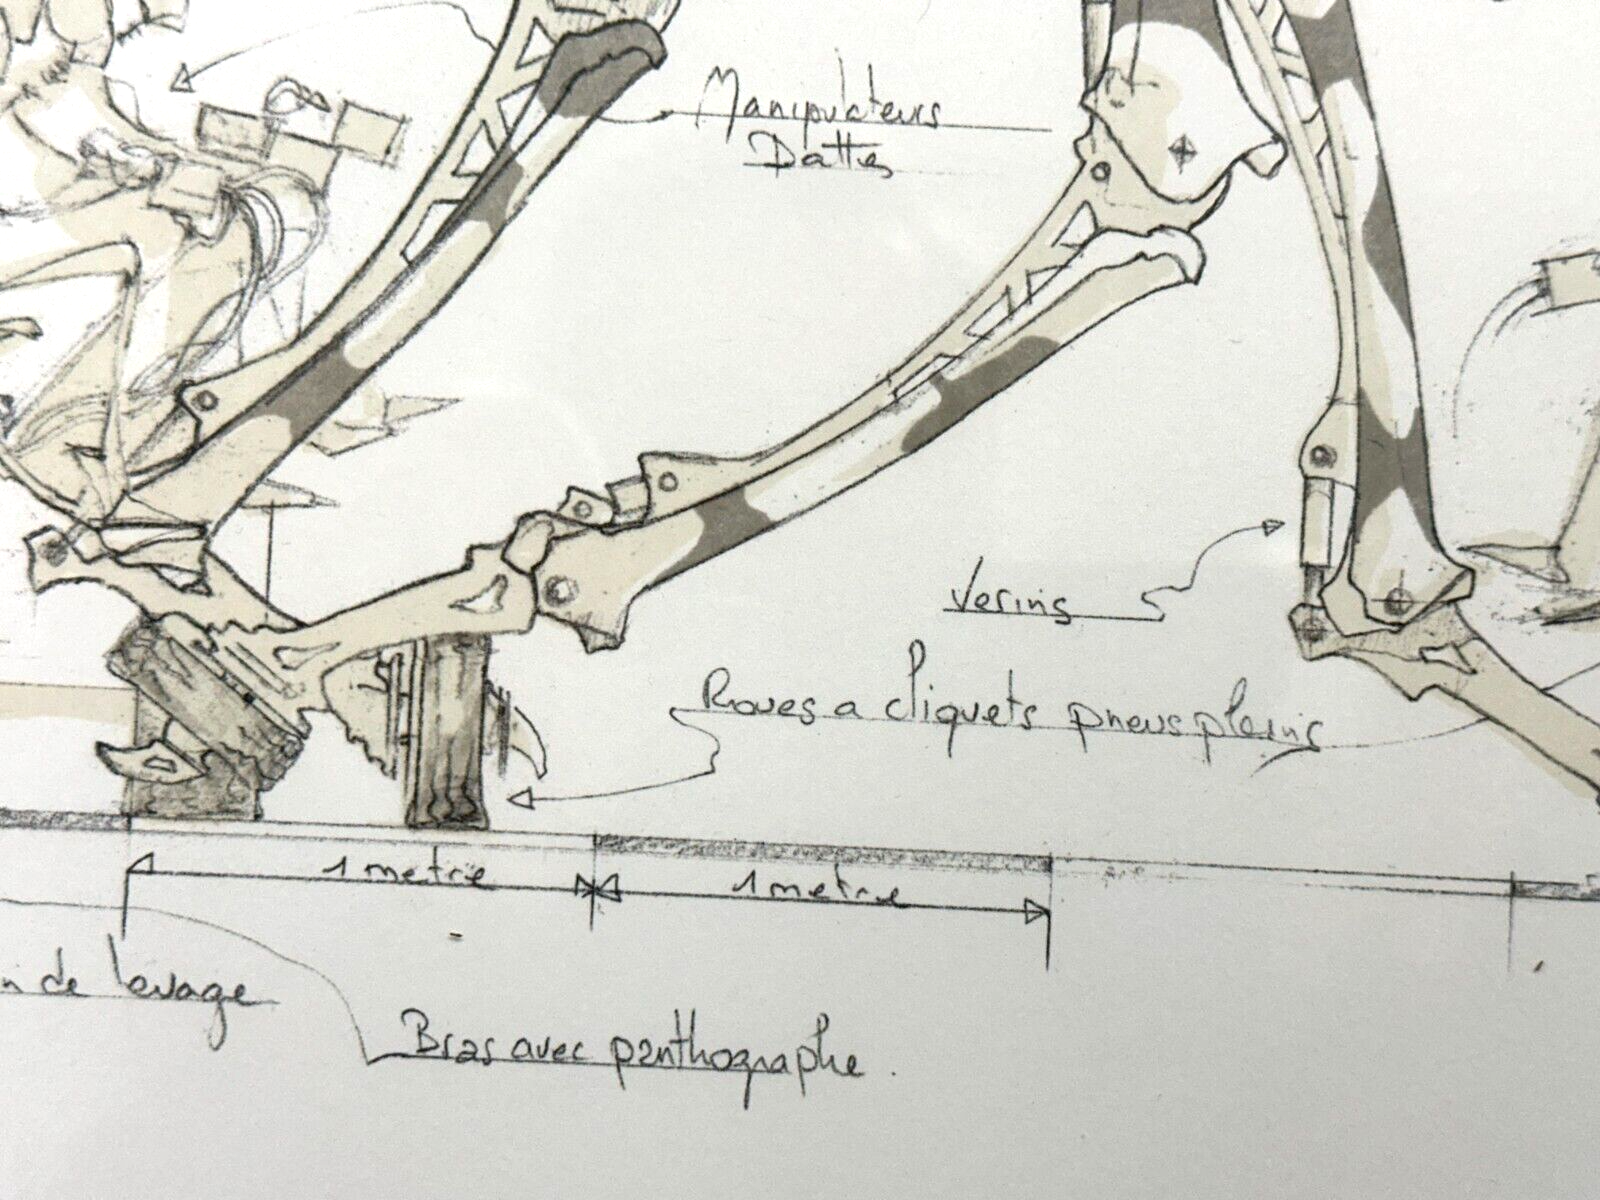 Manipulateurs
Dattes
Verins
Roues a cliquets pneus pleins
1 metre
1 metre
n de levage
Bras avec panthographe.